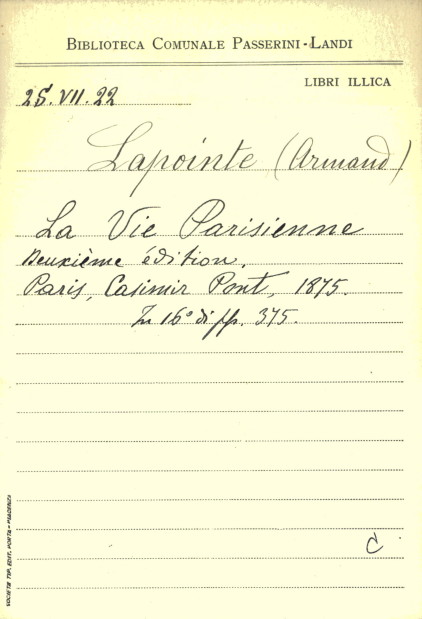 BIBLIOTECA COMUNALE PASSERINI-LANDI
LIBRI ILLICA
25.VII.22
Lapointe (Armand)
La Vie Parisienne
Deuxième édition.
Paris, Casimir Pont, 1875.
In 16° di pp. 375.
C
SOCIETÀ TIP. EDIT. PORTA - PIACENZA